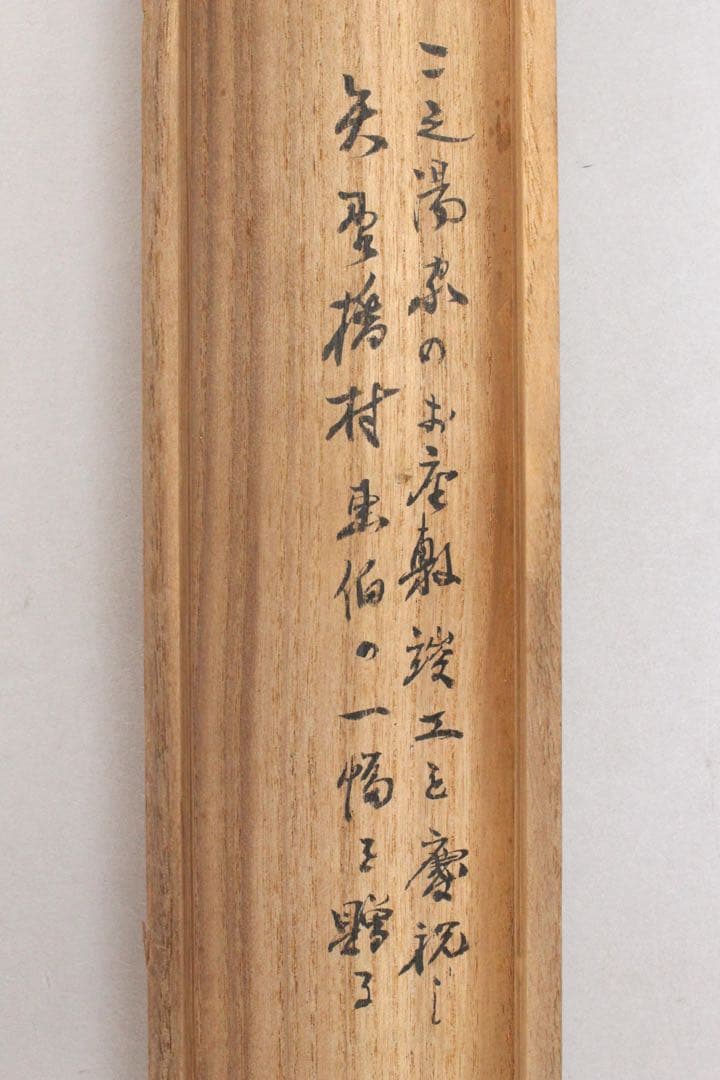 二之湯家のお座敷竣工を慶祝し
矢野橋村画伯の一幅を贈る